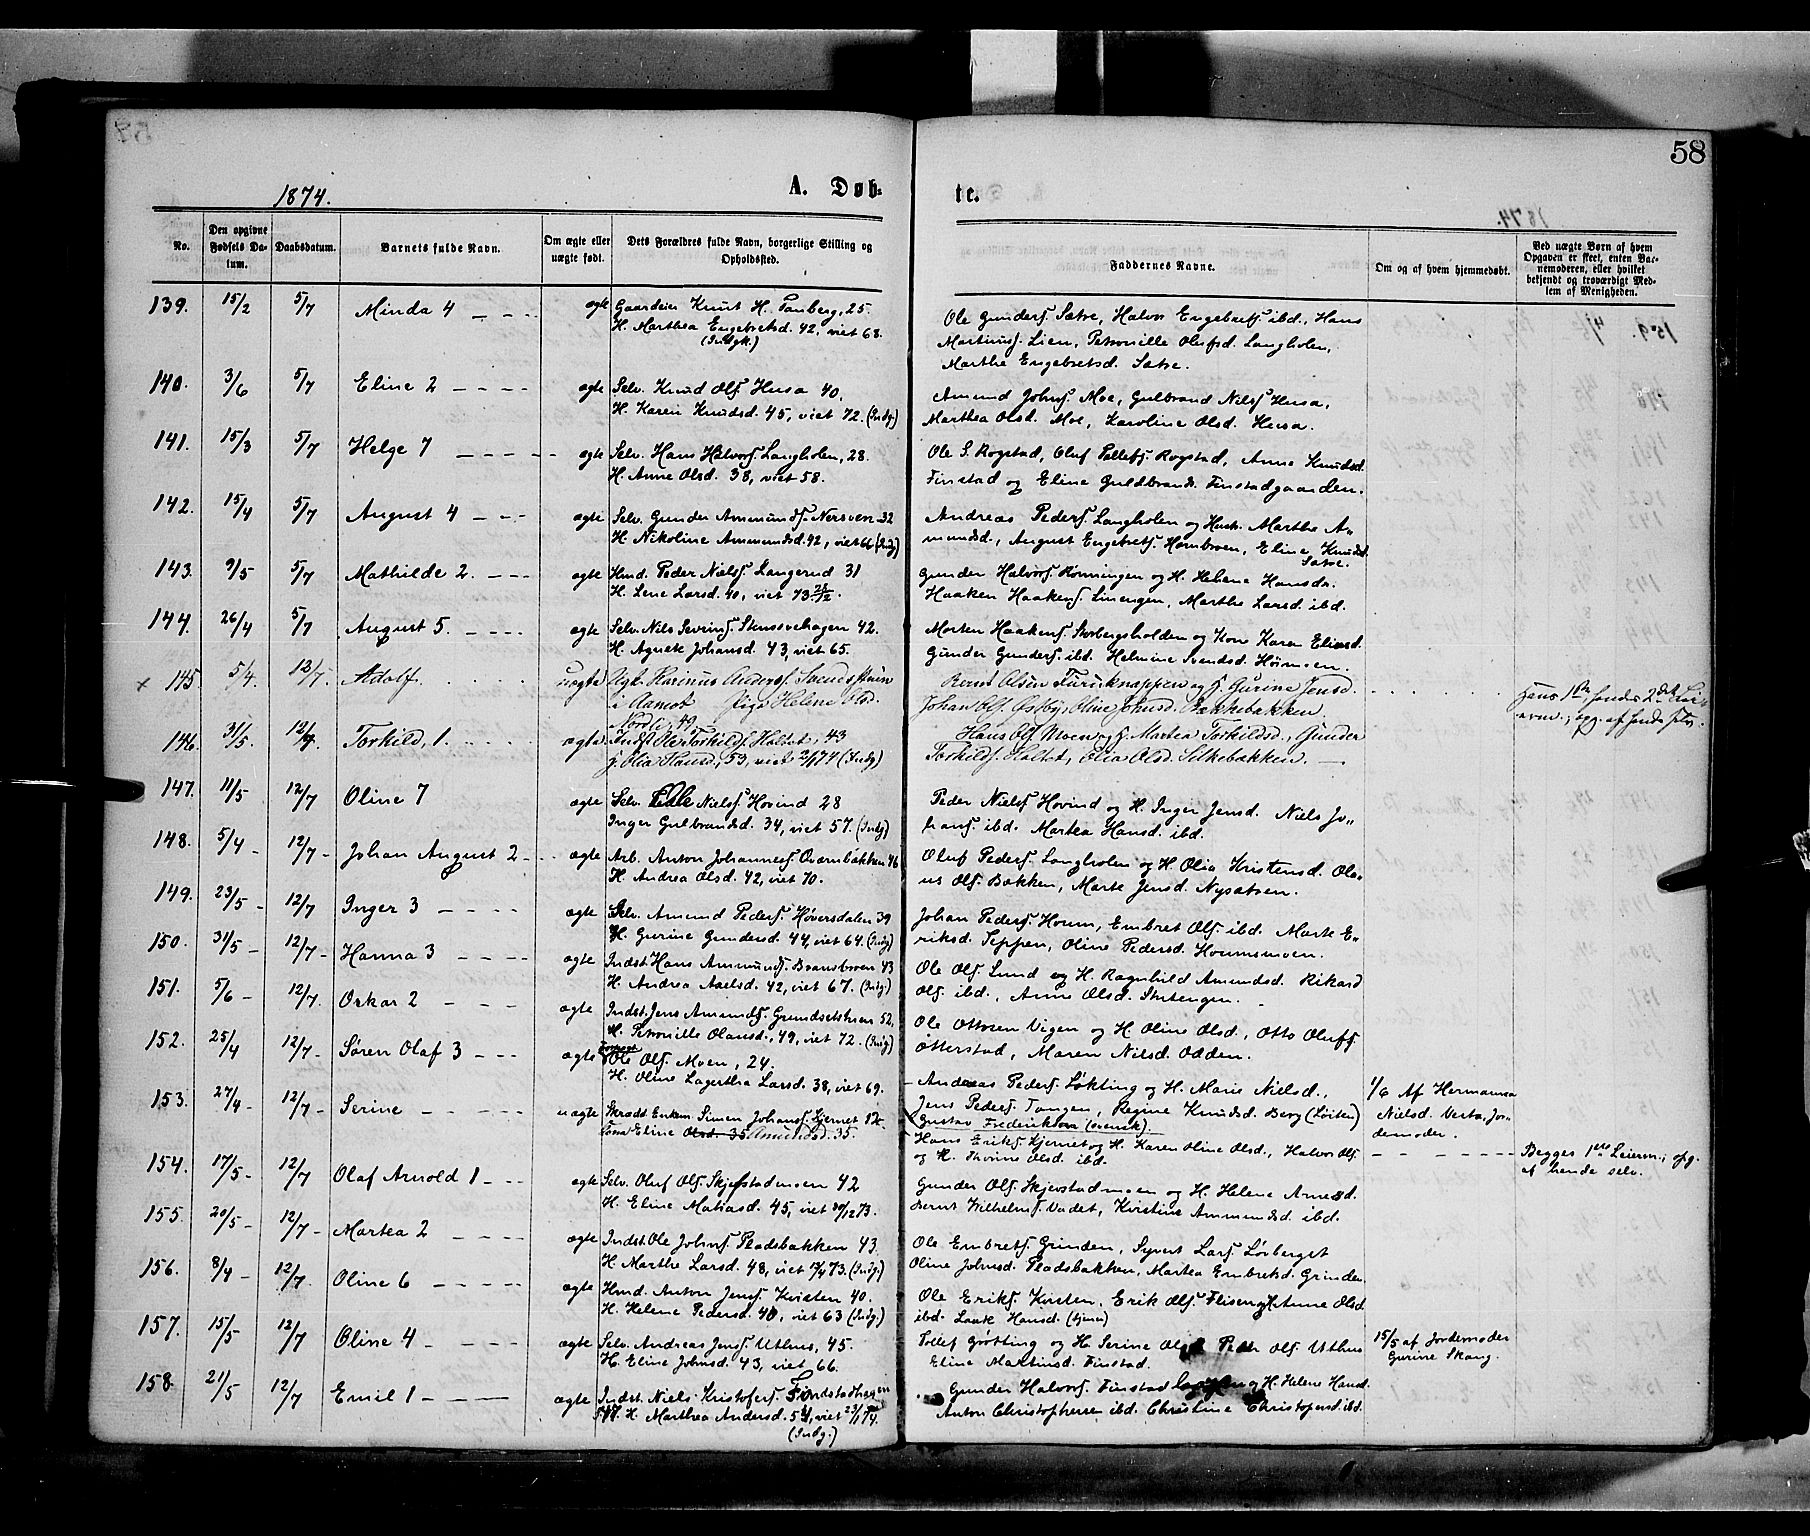 58
1874.
A. Døb-
te.
No.
Den opgivne Fødsels Datum.
Daabsdatum.
Barnets fulde Navn.
Om ægte eller uægte født.
Dets Forældres fulde Navn, borgerlige Stilling og Opholdssted.
Faddernes Navne.
Om og af hvem hjemmedøbt.
Ved uægte Børn af hvem Opgaven er skeet, enten Barnemoderen, eller hvilket bekjendt og troværdigt Medlem af Menigheden.
139. 15/2 5/7 Minda 4 ægte Gaardeier Knut H. Panberg, 25.
H. Marthea Engebretsd. 42, viet 68.
(Indgk.)
Ole Gunders. Sætre, Halvor Engebrets. ibd., Hans
Martinus. Lien, Petronille Olufsd. Langholen,
Marthe Engebretsd. Sætre.
140. 3/6 5/7 Eline 2 ægte Selv. Knud Ols. Husa 40.
H. Karen Knudsd. 45, viet 72. (Indg.)
Amund Johns. Moe, Gulbrand Nils. Husa,
Marthea Olsd. Moe, Karoline Olsd. Husa.
141. 15/3 5/7 Helge 7 ægte Selv. Hans Halvors. Langholen, 28.
H. Anne Olsd. 38, viet 58.
Ole S. Rogstad, Oluf Tollefs. Rogstad, Anne Knudsd.
Finstad og Eline Guldbrands. Finstadgaarden.
142. 15/4 5/7 August 4 ægte Selv. Gunder Ammunds. Nersveen 32
H. Nikoline Ammundsd. 42, viet 66 (Indg)
Andreas Peders. Langholen og Hust. Marthe A-
mundsd., August Engebrets. Hornbroen, Eline Knudsd.
Sætre.
143. 9/5 5/7 Mathilde 2. ægte Hmd. Peder Niels. Langerud 31
H. Lene Larsd. 40, viet 73
Gunder Halvors. Rønningen og H. Helene Hansdr.
Haaken Haakens. Linengen, Marthe Larsd. ibd.
144. 26/4 5/7 August 5. ægte Selv. Nils Sevrins. Stenssvehagen 42.
H. Agnete Johansd. 43, viet 65.
Morten Haakens. Storbergsholden og Kone Karen Eliasd.
Gunder Gunders. ibd. Helmine Svendsd. Hømoen.
x 145. 5/4. 12/7. Adolf. uægte Ugk. Karinus Anders.
i Aamot Pige Helene Olsd.
Nordli, 49
Bernt Olsen Furuknappen og H. Gurine Jensd.
Johan Ols. Østby, Oline Johnsd. Bakkebakken
Hans 1ste hendes 2det
opg. af
146. 31/5. 12/7. Torkild, 1. ægte Indst. Ole Torkilds. Holtet, 43
H. Olia Hansd., 53, viet 2/1 74 (Indg)
Hans Ols. Moen og H. Martea Torkildsd., Gunder
Torkilds. Holtet, Olia Olsd. Silkebakken.
147. 11/5 12/7 Oline 7 ægte Selv. Ole Niels. Hovind 28
Inger Gulbrandsd. 34, viet 57. (Indg)
Peder Niels. Hovind og H. Inger Jensd. Niels Jo-
hans. ibd. Martea Hansd. ibd.
148. 5/4 12/7 Johan August 2 ægte Arb. Anton Johannes. Kværnbakken 46
H. Andrea Olsd. 42, viet 70.
Oluf Peders. Langholen og H. Olia Kristensd. Ola-
us Ols. Bakken, Marte Jensd. Nysætren.
149. 23/5 12/7 Inger 3 ægte Selv. Amund Peders. Høversdalen 39
H. Gurine Gundersd. 44, viet 64. (Indg)
Johan Peders. Houm, Embret Ols. ibd. Marte E-
riksd. Seppen, Oline Pedersd. Houmsmoen.
150. 31/5 12/7 Hanna 3 ægte Indst. Hans Ammunds. Bransbroen 43
H. Andrea Axelsd. 42, viet 67. (Indg)
Ole Ols. Lund og H. Ragnhild Amundsd. Rikard
Ols. ibd., Anne Olsd. Stutengen.
151. 5/6 12/7. Oskar 2 ægte Indst. Jens Amunds. Grundsetskuen 52,
H. Petronille Olausd., 49, viet 72. (Indg)
Ole Ottosen Vigen og H. Oline Olsd., Otto Olufs.
Otterstad, Maren Nilsd. Odden.
152. 25/4 12/7 Søren Olaf 3 ægte Ole Ols. Moen, 24.
H. Oline Lagertha Larsd. 38, viet 69.
Andreas Peders. Løkting og H. Marie Nielsd.,
Jens Peders. Tangen, Regine Knudsd. Berg (Løiten)
Gustav Frederiksen (svensk).
1/6 Af Hermanna
Nielsd. Vesta, Jor-
demoder.
153. 27/4 12/7 Serine uægte Skrædd. Enkem. Simen Johans. Kjernet
Eline Amundsd. 35.
Hans Eriks. Kjernet og H. Karen Oline Olsd., Halvor Ols.
og H. Thorine Olsd. ibd.
Begges 1ste Leierm., opg.
af hende selv.
154. 17/5 12/7 Olaf Arnold 1 ægte Selv. Oluf Ols. Skjefstadmoen 42
H. Eline Matiasd. 45, viet 30/12 73.
Gunder Ols. Skjevstadmoen og H. Helene Arnesd.
Bernt Vilhelms. Vadet, Kirstine Ammundsd. ibd.
155. 20/5 12/7 Martea 2 ægte Indst. Ole Johns. Pladsbakken 43.
H. Marthe Larsd. 48, viet 73. (Indg.)
Ole Embrets. Grinden, Syvert Lars. Løvberget
Oline Johnsd. Pladsbakken, Martea Embretsd. Grinden
156. 8/4 12/7. Oline 6 ægte Hmd. Anton Jens. Kvisten 40.
H. Helene Pedersd. 40, viet 63 (Indg.)
Ole Eriks. Kvisten, Erik Ols. Flisen og H. Anne Olsd
ibd. Hansd.
157. 15/5 12/7 Oline 4 ægte Selv. Andreas Jens. Uthus, 45.
H. Eline Johnsd. 43, viet 66.
Tollef Grøtting og H. Serine Olsd. Peder Ols. Uthus
Eline Martinsd. Finstad.
15/5 af Jordemoder
Gurine Skaug.
158. 21/5 12/7 Emil 1 ægte Indst. Niels Kristofers. Finstadhagen
H. Marthea Andersd. 54, viet 23/1 74.
(Indg.)
Gunder Halvors. Finstad og H. Helene Hansd.
Anton Christophersen ibd. Christine Christophersd. ibd.